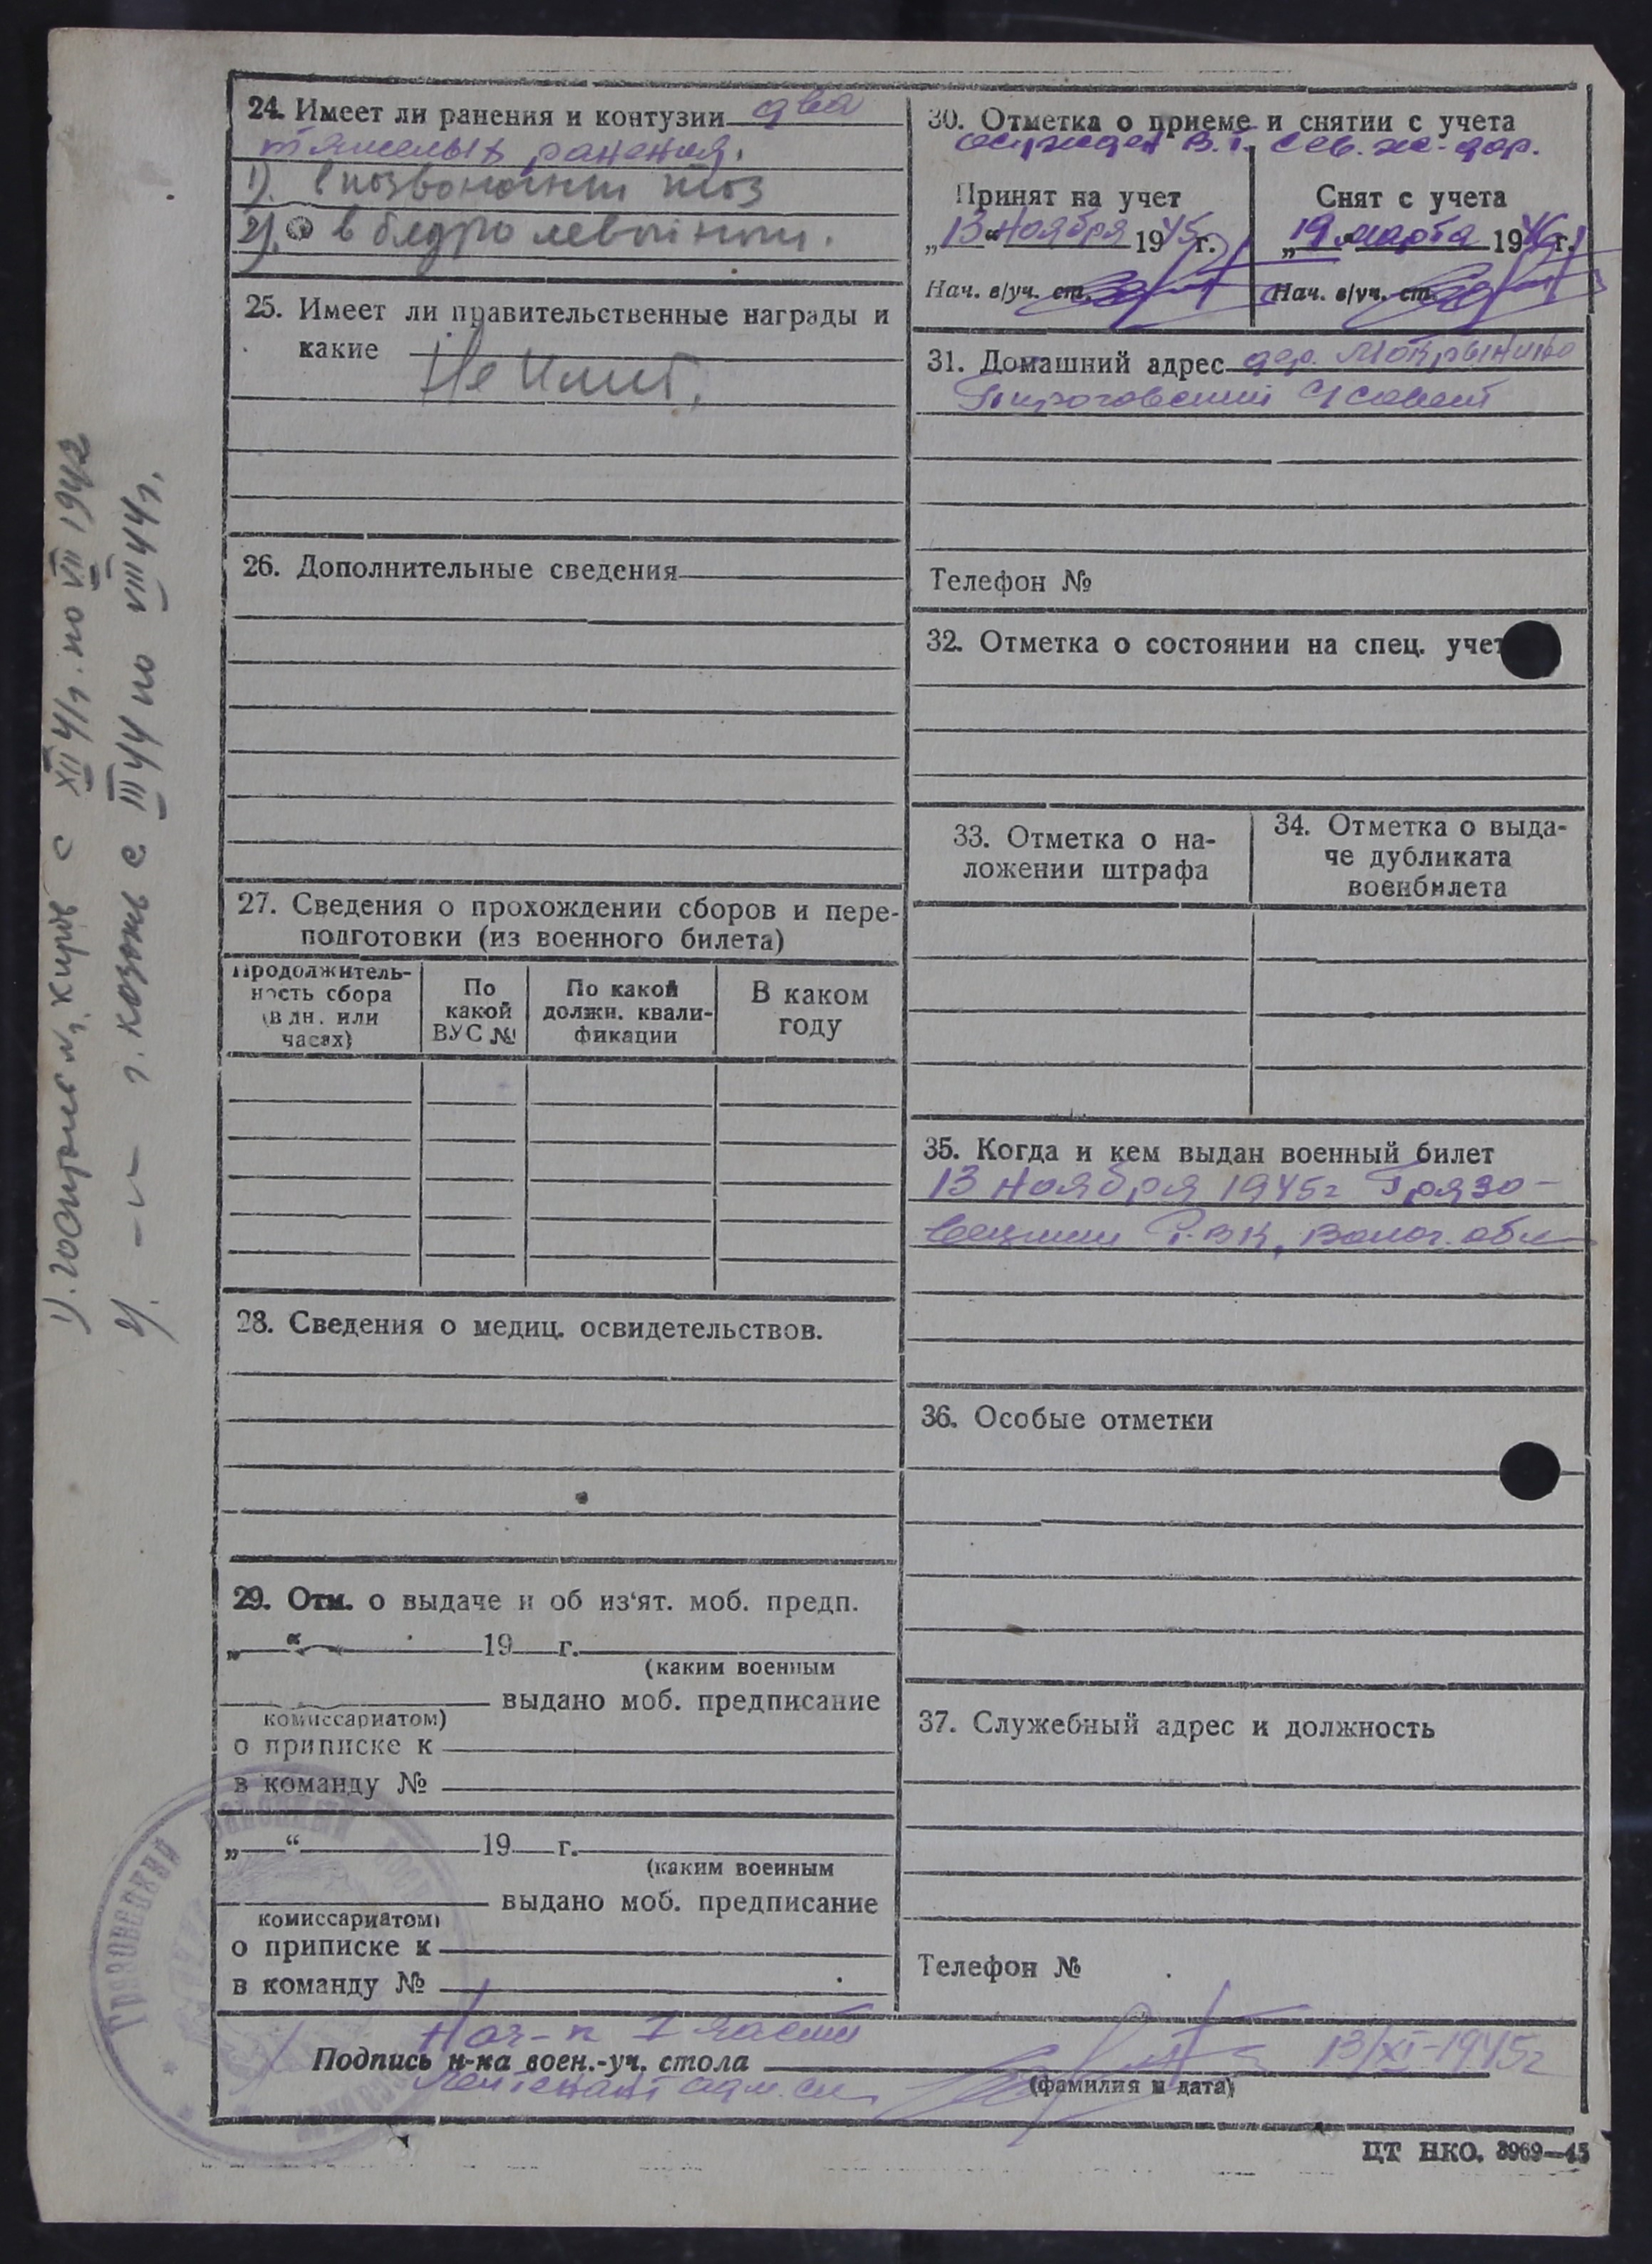 24. Имеет ли ранения и контузии два
тяжелых ранения.
1). в позвоночник таз
2). в бедро левой ноги.
25. Имеет ли правительственные награды и
какие Не имеет.
26. Дополнительные сведения
27. Сведения о прохождении сборов и пере-
подготовки (из военного билета)
Продолжитель-
ность сбора
(в дн. или
часах)
По
какой
ВУС №
По какой
должн. квали-
фикации
В каком
году
28. Сведения о медиц. освидетельствов.
29. Отм. о выдаче и об из‘ят. моб. предп.
„ “ 19 г.
(каким военным
выдано моб. предписание
комиссариатом)
о приписке к
в команду №
„ “ 19 г.
(каким военным
выдано моб. предписание
комиссариатом)
о приписке к
в команду №
30. Отметка о приеме и снятии с учета
осужден В.Т. Сев. ж. дор.
Принят на учет
„13“ Ноября 1945 г.
Нач. в/уч. ст.
Снят с учета
„19“ марта 1946 г.
Нач. в/уч. ст.
31. Домашний адрес дер. Мокрынино
с/совет
Телефон №
32. Отметка о состоянии на спец. учет
33. Отметка о на-
ложении штрафа
34. Отметка о выда-
че дубликата
военбилета
35. Когда и кем выдан военный билет
13 Ноября 1945г Грязо-
вецким РВК, Волог. обл
36. Особые отметки
37. Служебный адрес и должность
Телефон №
Нач-к 1 части
Подпись н-ка воен.-уч. стола
13/XI-1945г
Лейтенант адм. сл.
(фамилия и дата)
ЦТ НКО. 3969—45
1). госпиталь г. Киров с XII 41г. по VII 1942
2). -"- г. Казань с III 44 по VIII 44г.
Грязовецкий районный